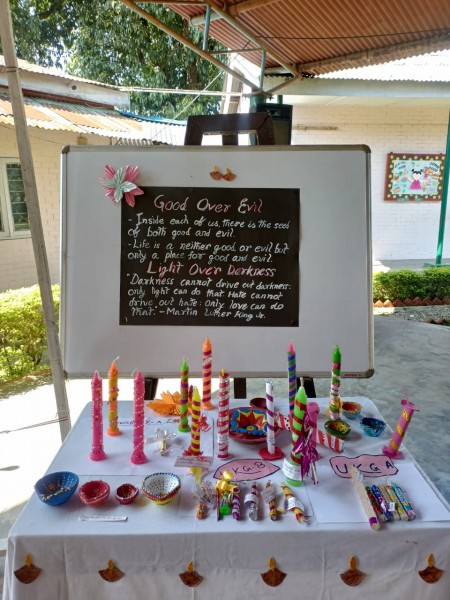 Good Over Evil
- Inside each of us, there is the seed
of both good and evil.
- Life is a neither good or evil but
only a place for good and evil.
Light Over Darkness
"Darkness cannot drive out darkness:
only light can do that. Hate cannot
drive out hate: only love can do
that. - Martin Luther King Jr.
UKG B
UKG A